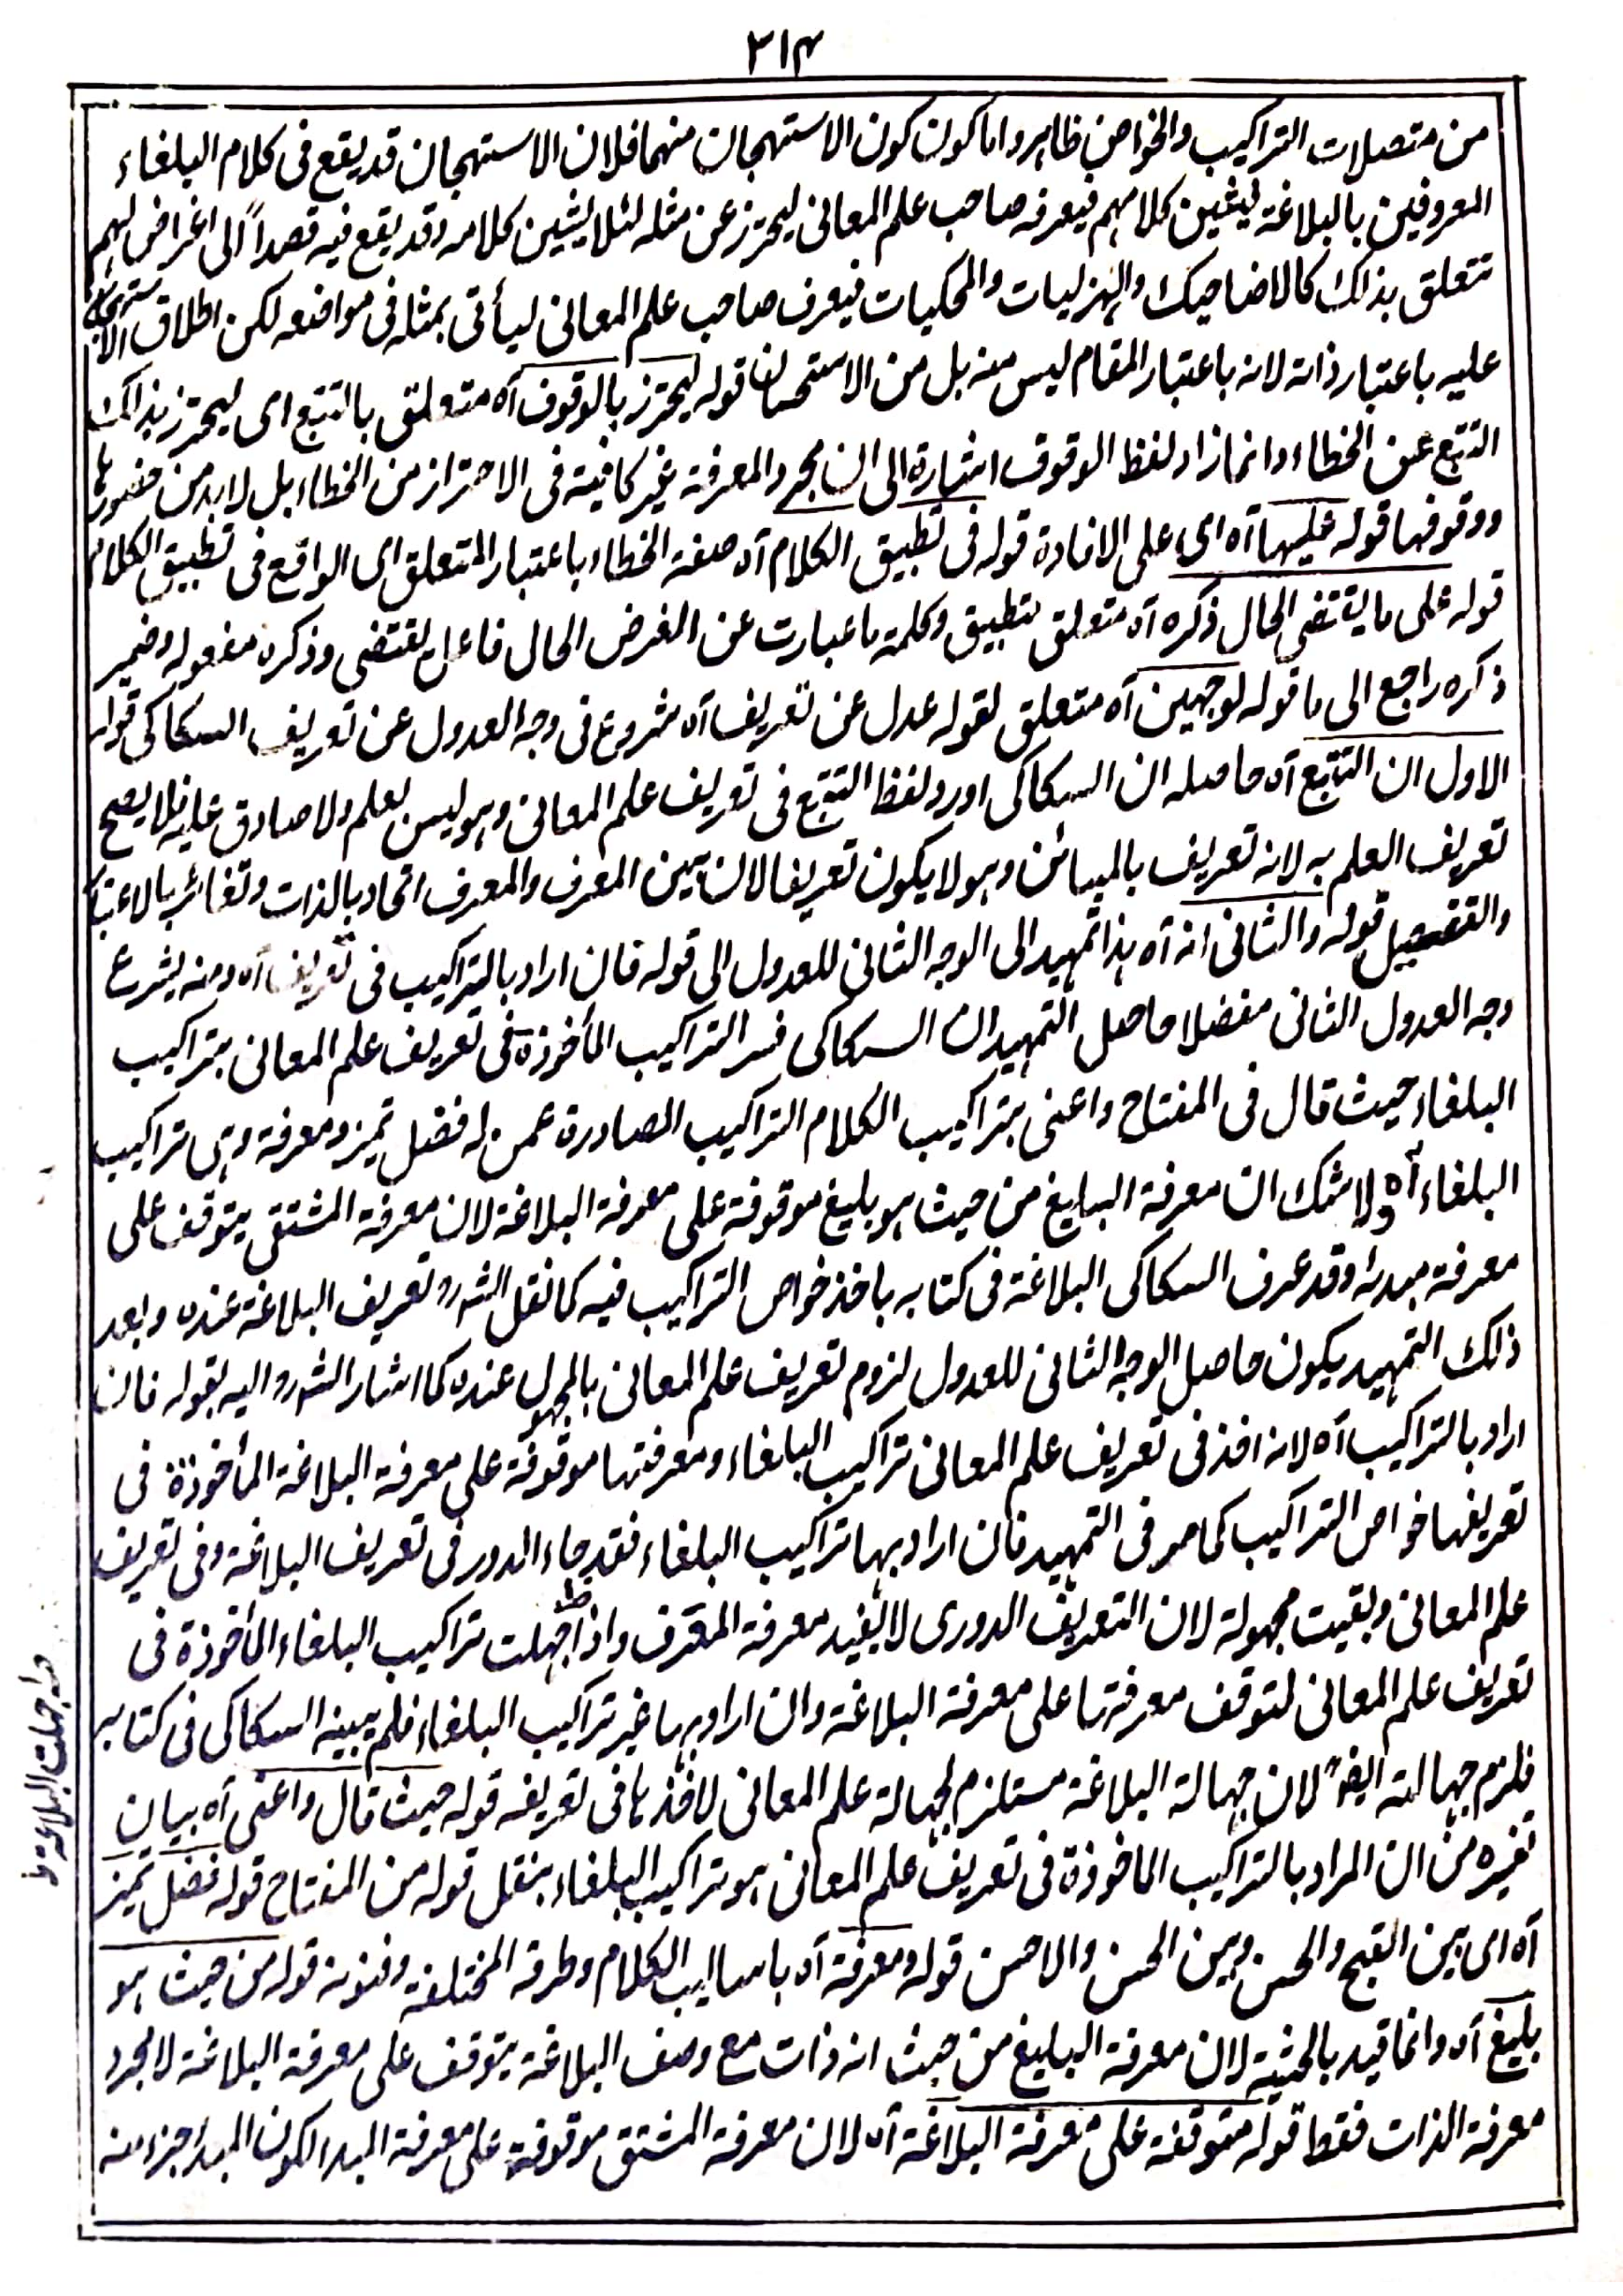 ٣١۴
من متصلات التراكيب والخواص ظاہر واما كون كون الاستہجان منهما فلان الاستہجان قد يقع فى كلام البلغاء
المعروفين بالبلاغة ليشين كلامہم فيعرفه صاحب علم المعانى ليحترز عن مثله لئلا يشين كلامه وقد يقع فيه قصداً الى اغراض لہم
تتعلق بذلك كالاضاحيك والہزليات والمحكيات فيعرف صاحب علم المعانى ليأتى بمثله فى مواضعه لكن اطلاق الاستہجان
عليه باعتبار ذاته لانه باعتبار المقام ليس منه بل من الاستحسان قوله ليحترز بالوقوف آه متعلق بالتتبع اى ليحترز بذلك
التتبع عن الخطاء وانما زاد لفظ الوقوف اشارة الى ان مجرد المعرفة غير كافية فى الاحتراز من الخطاء بل لابد من حضورہا
ووقوفها قوله عليہا آه اى على الافادة قوله فى تطبيق الكلام آه صفة الخطاء باعتبار المتعلق اى الواقع فى تطبيق الكلام
قوله على ما يقتضى الحال ذكره آه متعلق بتطبيق وكلمة ما عبارت عن الغرض الحال فاعل يقتضى وذكره مفعوله وضمير
ذكره راجع الى ما قوله لوجهين آه متعلق لقوله عدل عن تعريف آه شروع فى وجه العدول عن تعريف السكاكى قوله
الاول ان التتبع آه حاصله ان السكاكى اورد لفظ التتبع فى تعريف علم المعانى وہو ليس بعلم ولا صادق عليه فلا يصح
تعريف العلم به لانه تعريف بالمبائن وہو لا يكون تعريفا لان بين المعرف والمعرف اتحاد بالذات وتغائر بالاعتبار
والتفصيل قوله والثانى انه آه ہذا تمہيد الى الوجه الثانى للعدول الى قوله فان اراد بالتراكيب فى تعريف آه ومنه يشرع
وجه العدول الثانى مفصلا حاصل التمہيد ان السكاكى فسر التراكيب المأخوذة فى تعريف علم المعانى بتراكيب
البلغاء حيث قال فى المفتاح واعنى بتراكيب الكلام التراكيب الصادرة عمن له فضل تميز ومعرفة وہى تراكيب
البلغاء آه ولا شك ان معرفة البليغ من حيث ہو بليغ موقوفة على معرفة البلاغة لان معرفة المشتق يتوقف على
معرفة مبدئه وقد عرف السكاكى البلاغة فى كتابه باخذ خواص التراكيب فيه كما نقل الشہ رہ تعريف البلاغة عنده وبعد
ذلك التمہيد يكون حاصل الوجه الثانى للعدول لزوم تعريف علم المعانى بالمجہول عنده كما اشار الشہ رہ اليه بقوله فان
اراد بالتراكيب آه لانه اخذ فى تعريف علم المعانى تراكيب البلغاء ومعرفتها موقوفة على معرفة البلاغة المأخوذة فى
تعريفها خواص التراكيب كما مر فى التمہيد فان اراد بہا تراكيب البلغاء فقد جاء الدور فى تعريف البلاغة وفى تعريف
علم المعانى وبقيت مجہولة لان التعريف الدورى لا يفيد معرفة المعرف واذا جہلت تراكيب البلغاء المأخوذة فى
تعريف علم المعانى لتوقف معرفتہا على معرفة البلاغة وان اراد بہا غير تراكيب البلغاء فلم يبينه السكاكى فى كتابہ
فلزم جہالته ايضاً لان جہالة البلاغة مستلزم لجہالة علم المعانى لاخذہا فى تعريفه قوله حيث قال واعنى آه بيان
تفسيره من ان المراد بالتراكيب الماخوذة فى تعريف علم المعانى ہو تراكيب البلغاء بنقل قوله من المفتاح قوله فضل تميز
آه اى بين القبح والحسن وبين الحسن والاحسن قوله ومعرفة آه باساليب الكلام وطرقه المختلفة وفنونه قوله من حيث ہو
بليغ آه وانما قيد بالحيثية لان معرفة البليغ من حيث انه ذات مع وصف البلاغة يتوقف على معرفة البلاغة لا مجرد
معرفة الذات فقط قوله متوقفة على معرفة البلاغة آه لان معرفة المشتق موقوفة على معرفة المبدا لكون المبدا جزء منه
جہلت البلاغة